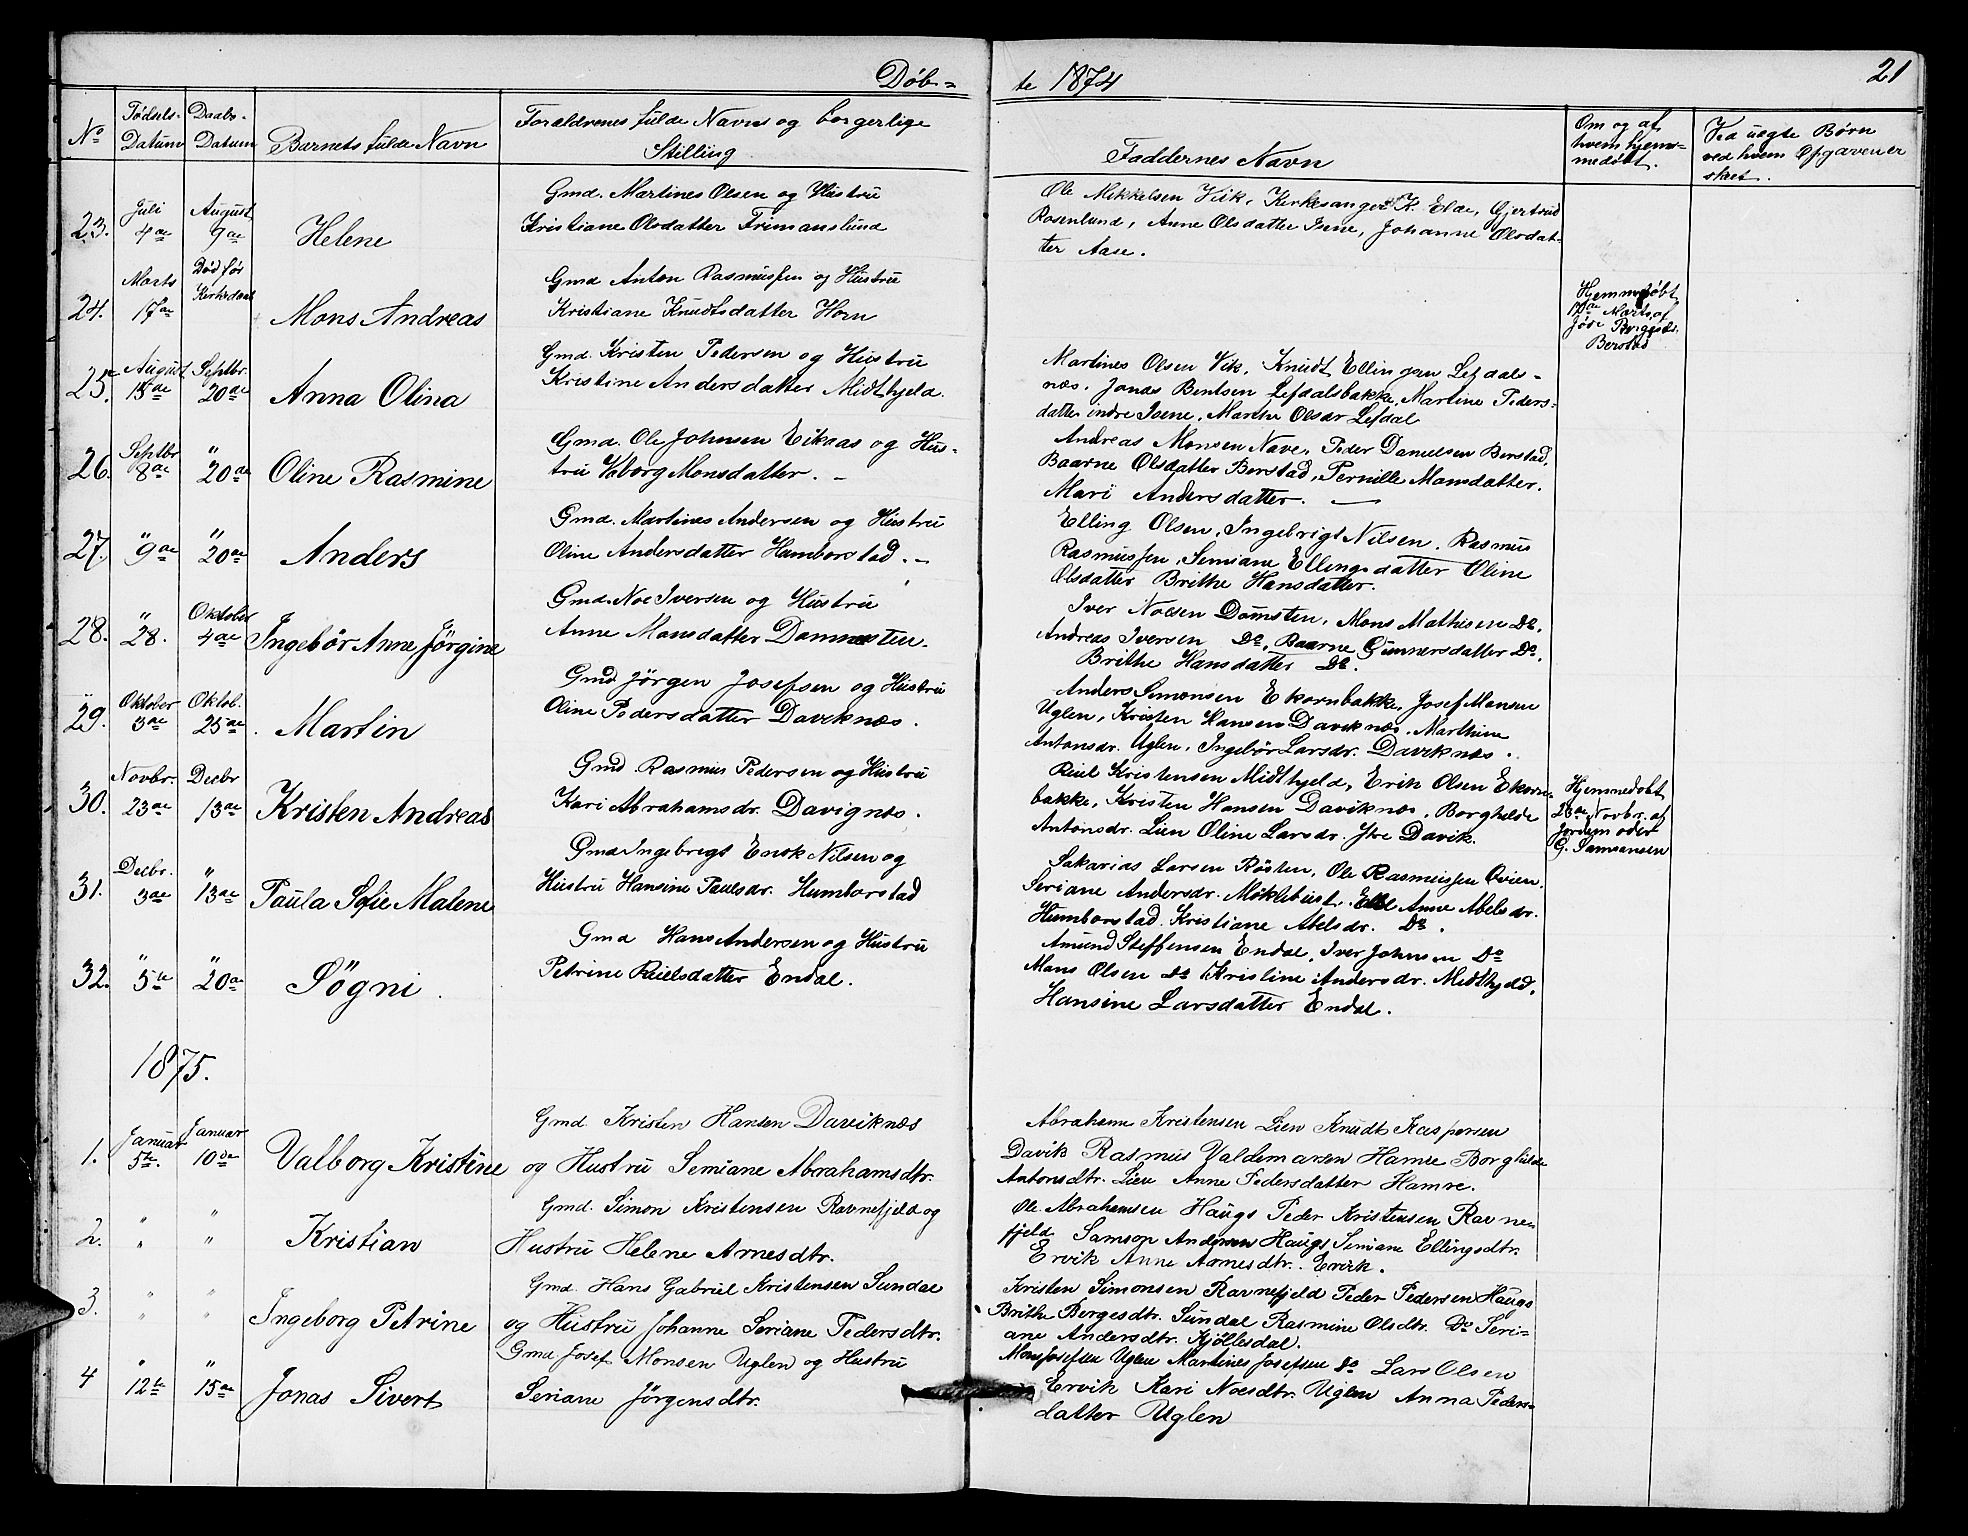 Døb-
te 1874
21
No
Fødsels-
Datum
Daabs-
Datum
Barnets fulde Navn
Forældrenes fulde Navne og borgerlige
Stilling
Faddernes Navn
Om og af
hvem hjem-
medøbt.
Ved uægte Børn
ved hvem Opgaven er
skeet.
23.
Juli
4de
August
9de
Helene
Gmd. Martines Olsen og Hustru
Kristiane Olsdatter Frimanslund
Ole Mikkelsen Vik, Kirkesanger K. Elde, Gjertrud
Rosenlund, Anne Olsdatter Isene, Johanne Olsdat-
ter Aase.
24.
Marts
17de
Død før
Kirkedaab
Mons Andreas
Gmd Anton Rasmussen og Hustru
Kristiane Knudtsdatter Horn
Hjemmedøbt
17de Marts af
Berstad
25.
August
15de
Septbr.
20de
Anna Olina
Gmd. Kristen Pedersen og Hustru
Kristine Andersdatter Midthjeld.
Martines Olsen Vik, Knudt Ellingsen Lefdals-
næs. Jonas Bentsen Lefdalsbakke, Martine Peders-
datter indre Isene, Marthe Olsdr Lefdal
26.
Septbr
8de
"
20de
Oline Rasmine
Gmd. Ole Johnsen Eikaas og Hus-
tru Valborg Monsdatter. -
Andreas Monsen Nave, Peder Danielsen Berstad,
Baarne Olsdatter Berstad, Pernille Monsdatter.
Mari Andersdatter. -
27.
"
9de
"
20de
Anders
Gmd. Martines Andersen og Hustru
Oline Andersdatter Humborstad. -
Elling Olsen, Ingebrigt Nilsen, Rasmus
Rasmussen, Semiane Ellingsdatter Oline
Olsdatter Brithe Hansdatter.
28.
"
28.
Oktober
4de
Ingebør Anne Jørgine
Gmd. Noe Iversen og Hustru
Anne Monsdatter Domnesten.
Iver Noesen Domsten, Mons Mathisen Do,
Andreas Iversen Do, Baarne Gunnersdatter Do,
Brithe Hansdatter Do.
29.
Oktober
3de
Oktob.
25de
Martin
Gmd Jørgen Josefsen og Hustru
Oline Pedersdatter Daviknæs.
Anders Simonsen Ekornbakke, Josef Monsen
Uglen, Kristen Hansen Daviknæs, Marthine
Antonsdr. Uglen, Ingebør Larsdr. Daviknæs.
30.
Novbr.
23de
Decbr
13de
Kristen Andreas
Gmd Rasmus Pedersen og Hustru
Kari Abrahamsdr. Davignæs.
Reiel Kristensen Midthjeld, Erik Olsen Ekorn-
bakke, Kristen Hansen Daviknæs, Borghilde
Antonsdr. Lien Oline Larsdr. Ytre Davik.
Hjemmedøbt
23de Novbr. af
Jordemoder
G. Samsonsen
31.
Decbr.
3de
"
13de
Paula Sofie Malene
Gmd Ingebrigt Enok Nilsen og
Hustru Hansine Paulsdr. Humborstad
Sakarias Larsen Røsten, Ole Rasmussen Qvien,
Seriane Andersdr. Møklebust, Anne Abelsdr.
Humborstad, Kristiane Abelsdr. Do.
32.
"
5te
"
20de
Søgni
Gmd Hans Andersen og Hustru
Petrine Reielsdatter Endal.
Amund Steffensen Endal, Iver Johnsen Do
Mons Olsen Do Kristine Andersdr. Midthjeld,
Hansine Larsdatter Endal.
1875.
1.
Januar
5te.
Januar
10de
Valborg Kristine
Gmd. Kristen Hansen Daviknæs
og Hustru Semiane Abrahamsdtr.
Abraham Kristensen Lien Knudt Kaspersen
Davik Rasmus Valdemarsen Hamre Borghilde
Antonsdtr. Lien Anne Pedersdatter Hamre.
2.
"
"
"
"
Kristian
Gmd. Simon Kristensen Ravnefjeld og
Hustru Helene Arnesdtr.
Ole Abrahamsen Haugs Peder Kristensen Ravne-
fjeld Samson Andersen Haugs Simiane Ellingsdtr.
Ervik Anne Arnesdtr. Ervik.
3.
"
"
"
"
Ingeborg Petrine
Gmd. Hans Gabriel Kristensen Sundal
og Hustru Johanne Seriane Pedersdtr.
Kristen Simonsen Ravnefjeld Peder Pedersen Haugs
Brithe Børgesdtr. Sundal Rasmine Olsdtr. Do Seri-
ane Andersdtr. Kjøllesdal.
4
"
12te
"
15de
Jonas Sivert
Gmd Josef Monsen Uglen og Hustru
Seriane Jørgensdtr.
Mons Josefsen Uglen Martines Josefsen Do Lars Olsen
Ervik Kari Noesdtr. Uglen Anna Peders-
datter Uglen